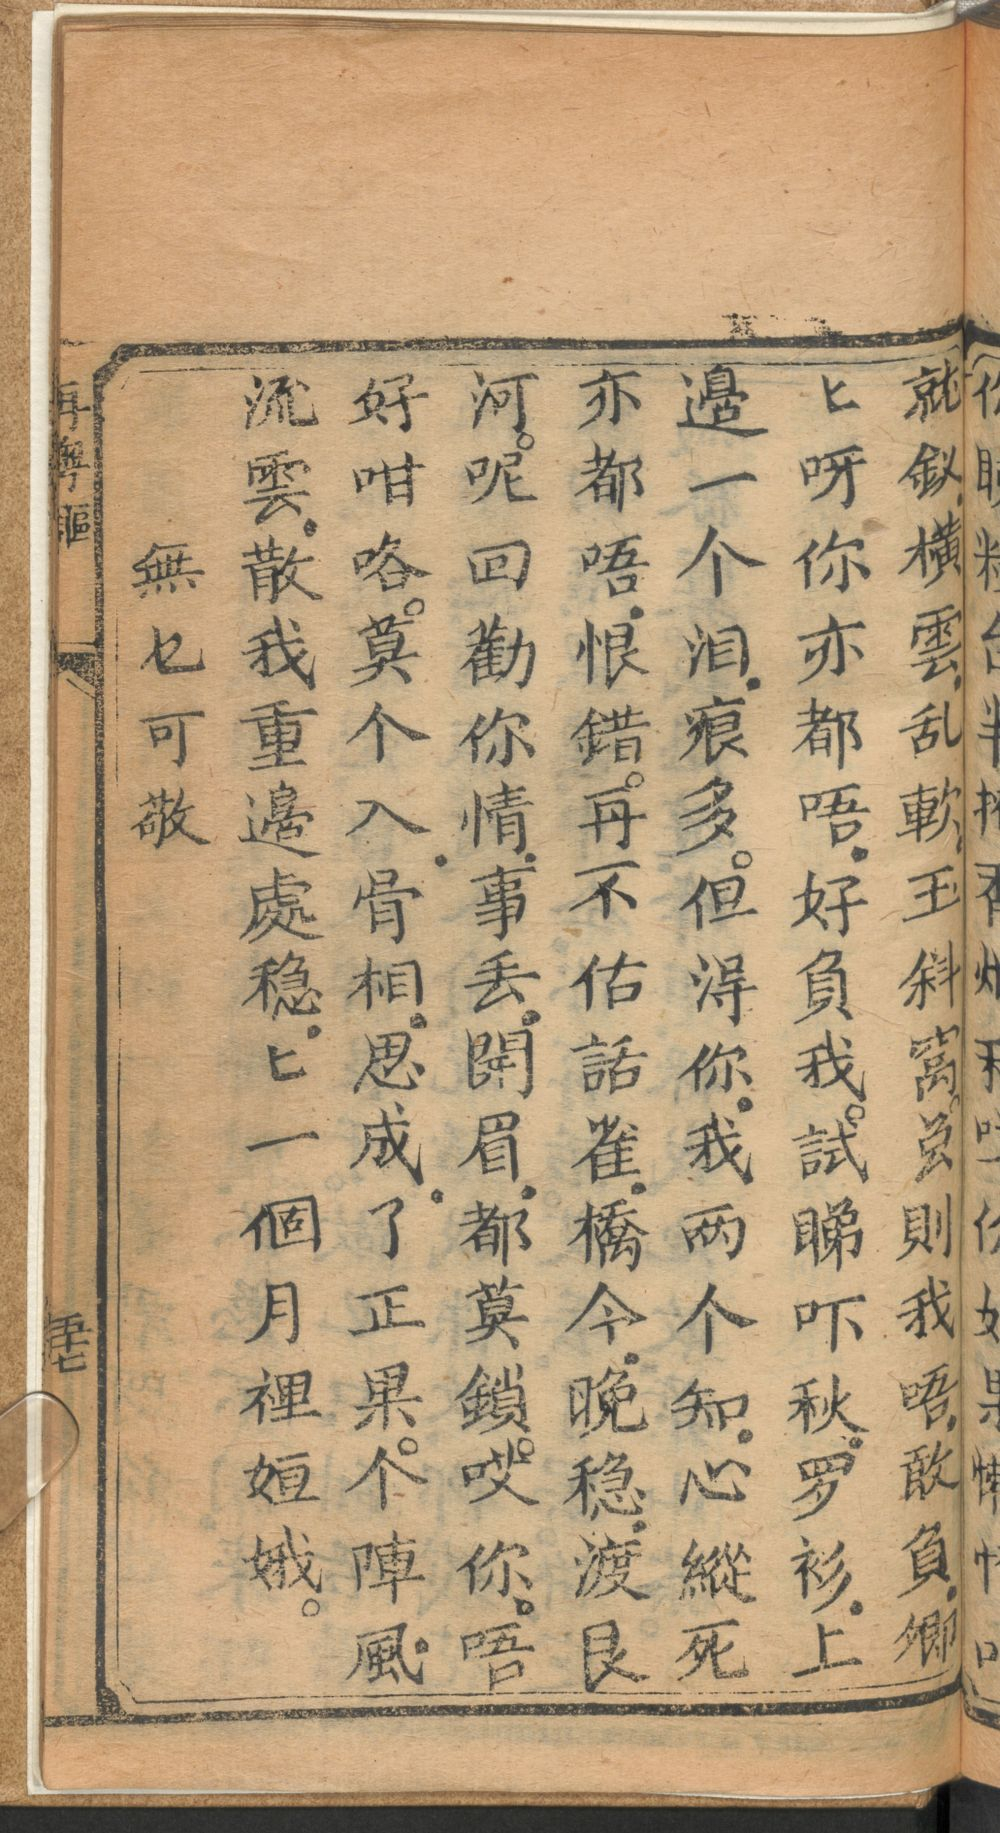 就釵横雲乱軟玉斜窩。虽則我唔敢負卿
匕呀你亦都唔好負我。試睇吓秋罗衫上
邉一个泪痕多。但得你我两个知心縱死
亦都唔恨錯。再不估話雀橋今晚稳渡艮
河。呢回勸你情事丢開眉都莫鎖。哎你。唔
好咁咯。莫个入骨相思成了正果。个陣風
流雲散我重邉處稳匕一個月裡姮娥。
無乜可敬
再粤謳
五十七